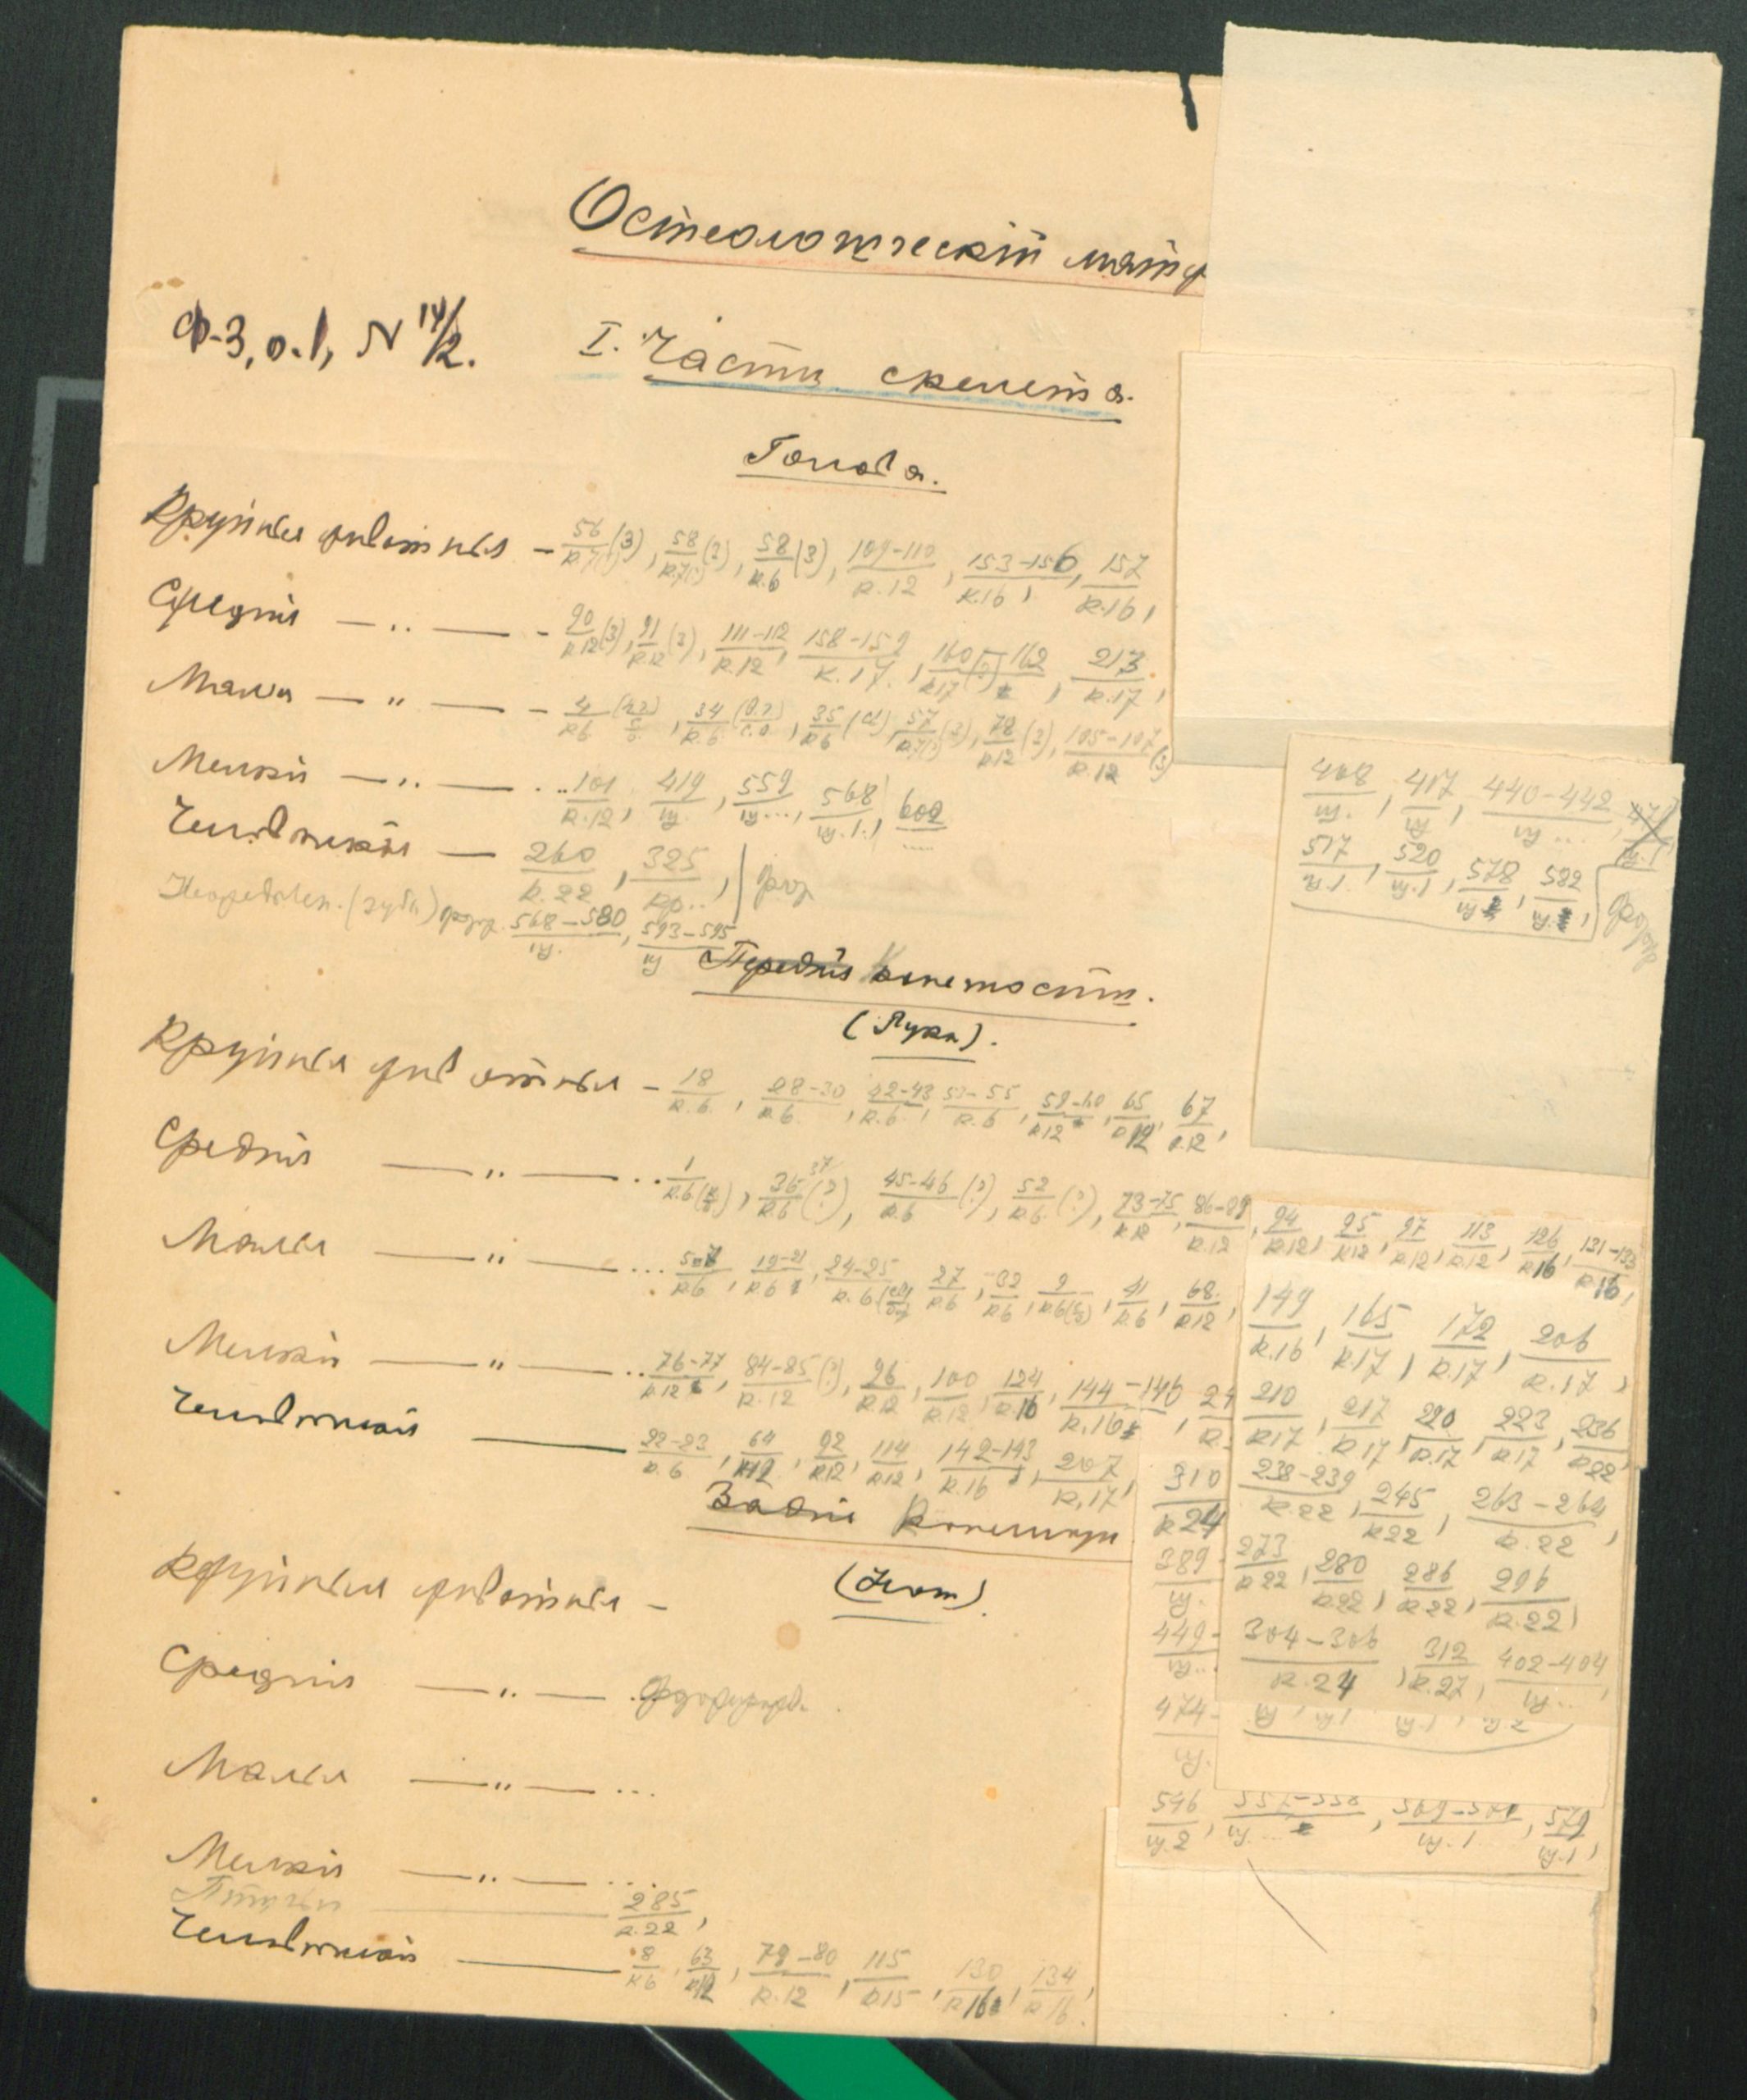 Остеологическій матер
Ф-3, о.1, N 14/2.
I. Части скелета.
Голова.
Крупныя животныя - 56/к.7(?) (3), 58/к.7(?) (3), 58/к.6 (3), 109-110/к.12, 153-156/к.16, 157/к.16,
Среднія — „ — - 90/к.12 (3), 91/к.12 (3), 111-112/к.12, 158-159/к.17, 160-162/к.17, 213/к.17,
Малыя — „ — - 4/к.6, 34/к.6, 35/к.6, 57/к.7(?), 78/к.12 (3), 105-107/к.12 (3)
Мелкія — „ — ... 101/к.12, 419/щ., 559/щ..., 568/щ.1., 602
Человѣческія — 260/к.22, 325/кр..,
Неопредѣлен. (зубы) 568-580/щ., 593-595/щ
Переднія Конечности.
(Руки).
Крупныя животныя - 18/к.6, 28-30/к.6, 42-43/к.6, 53-55/к.6, 59-60/к.12, 65/к.12, 67/к.12,
Среднія — „ — .. 1/к.6, 36 37/к.6 (?), 45-46/к.6 (?), 52/к.6 (?), 73-75/к.12, 86-89/к.12, 94/к.12, 95/к.12, 97/к.12, 113/к.12, 126/к.16, 131-133/к.16,
Малыя — „ — ... 5-7/к.6, 19-21/к.6, 24-25/к.6, 27/к.6, 32/к.6, 9/к.6, 41/к.6, 68/к.12,
Мелкія — „ — .. 76-77/к.12, 84-85/к.12 (?), 96/к.12, 100/к.12, 124/к.16, 144-146/к.16, 21
Человѣческія — 22-23/к.6, 64/к.12, 92/к.12, 114/к.12, 142-143/к.16, 207/к.17,
Заднія Конечности
(Ноги).
Крупныя животныя -
Среднія — „ — .
Малыя — „ — ...
Мелкія — „ — ...
Птицы — 285/к.22,
Человѣческія — 8/к.6, 63/к.12, 79-80/к.12, 115/к.15, 130/к.16, 134/к.16,
408/щ., 417/щ, 440-442/щ...,
517/щ.1., 520/щ.1, 578/щ, 582/щ.,
149/к.16, 165/к.17, 172/к.17, 206/к.17,
210/к.17, 217/к.17, 220/к.17, 223/к.17, 236/к.22
238-239/к.22, 245/к.22, 263-264/к.22,
273/к.22, 280/к.22, 286/к.22, 296/к.22,
304-306/к.24, 312/к.27, 402-404/щ...,
310/к.24
389-/щ.
449-/щ...
474-/щ.
546/щ.2, 557-558/щ..., 569-571/щ.1., 579/щ.1,